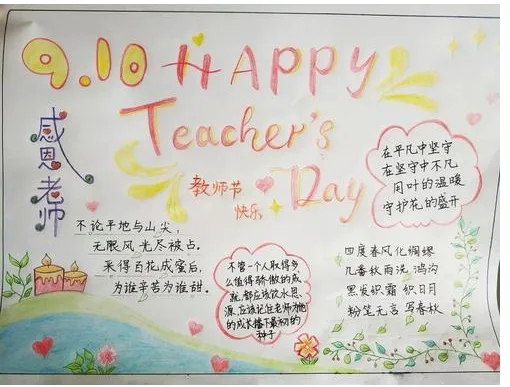 9.10 HAPPY
Teacher's
Day
感恩老师
教师节
快乐
在平凡中坚守
在坚守中不凡
用叶的温暖
守护花的盛开
不论平地与山尖，
无限风光尽被占。
采得百花成蜜后，
为谁辛苦为谁甜。
不管一个人取得多
么值得骄傲的成
就，都应该饮水思
源，应该记住老师为他
的成长播下最初的
种子
四度春风化绸缪
几番秋雨洗鸿沟
黑发积霜织日月
粉笔无言写春秋